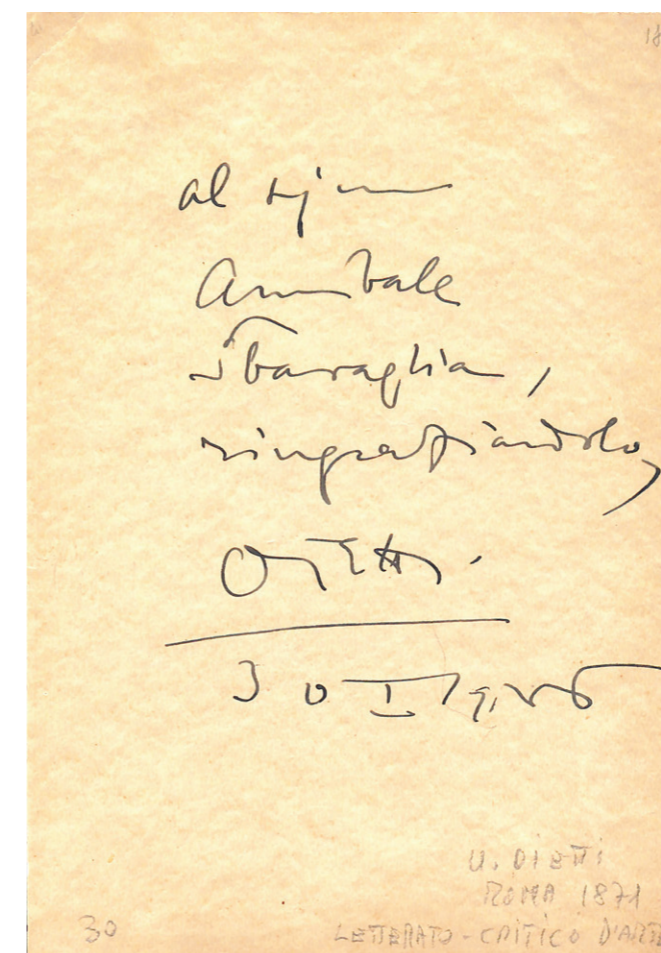 18
al
Annibale
Sbaraglia,
ringraziandolo,
Ojetti.
30 I
U. OIETTI
ROMA 1871
30
LETTERATO - CRITICO D'ARTE